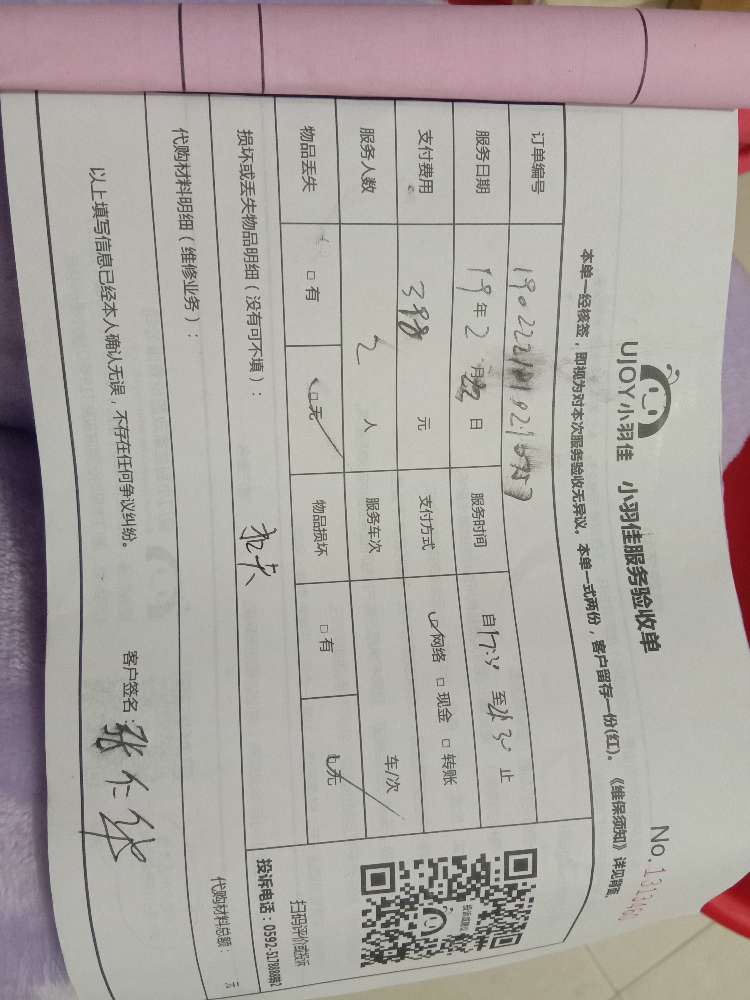 UJOY小羽佳 小羽佳服务验收单
No.
本单一经核签，即视为对本次服务验收无异议。本单一式两份，客户留存一份(红)。《维保须知》详见背面
订单编号
服务日期 19年2月22日 服务时间 自17:30 至 30 止
支付费用 398 元 支付方式 ☑网络 □现金 □转账
服务人数 2 人 服务车次 车/次
物品丢失 □有 ☑无 物品损坏 □有 ☑无
损坏或丢失物品明细（没有可不填）：
扫码评价或投诉
投诉电话：0592-
代购材料明细（维修业务）：
代购材料总额： 元
以上填写信息已经本人确认无误，不存在任何争议纠纷。
客户签名：张仁华